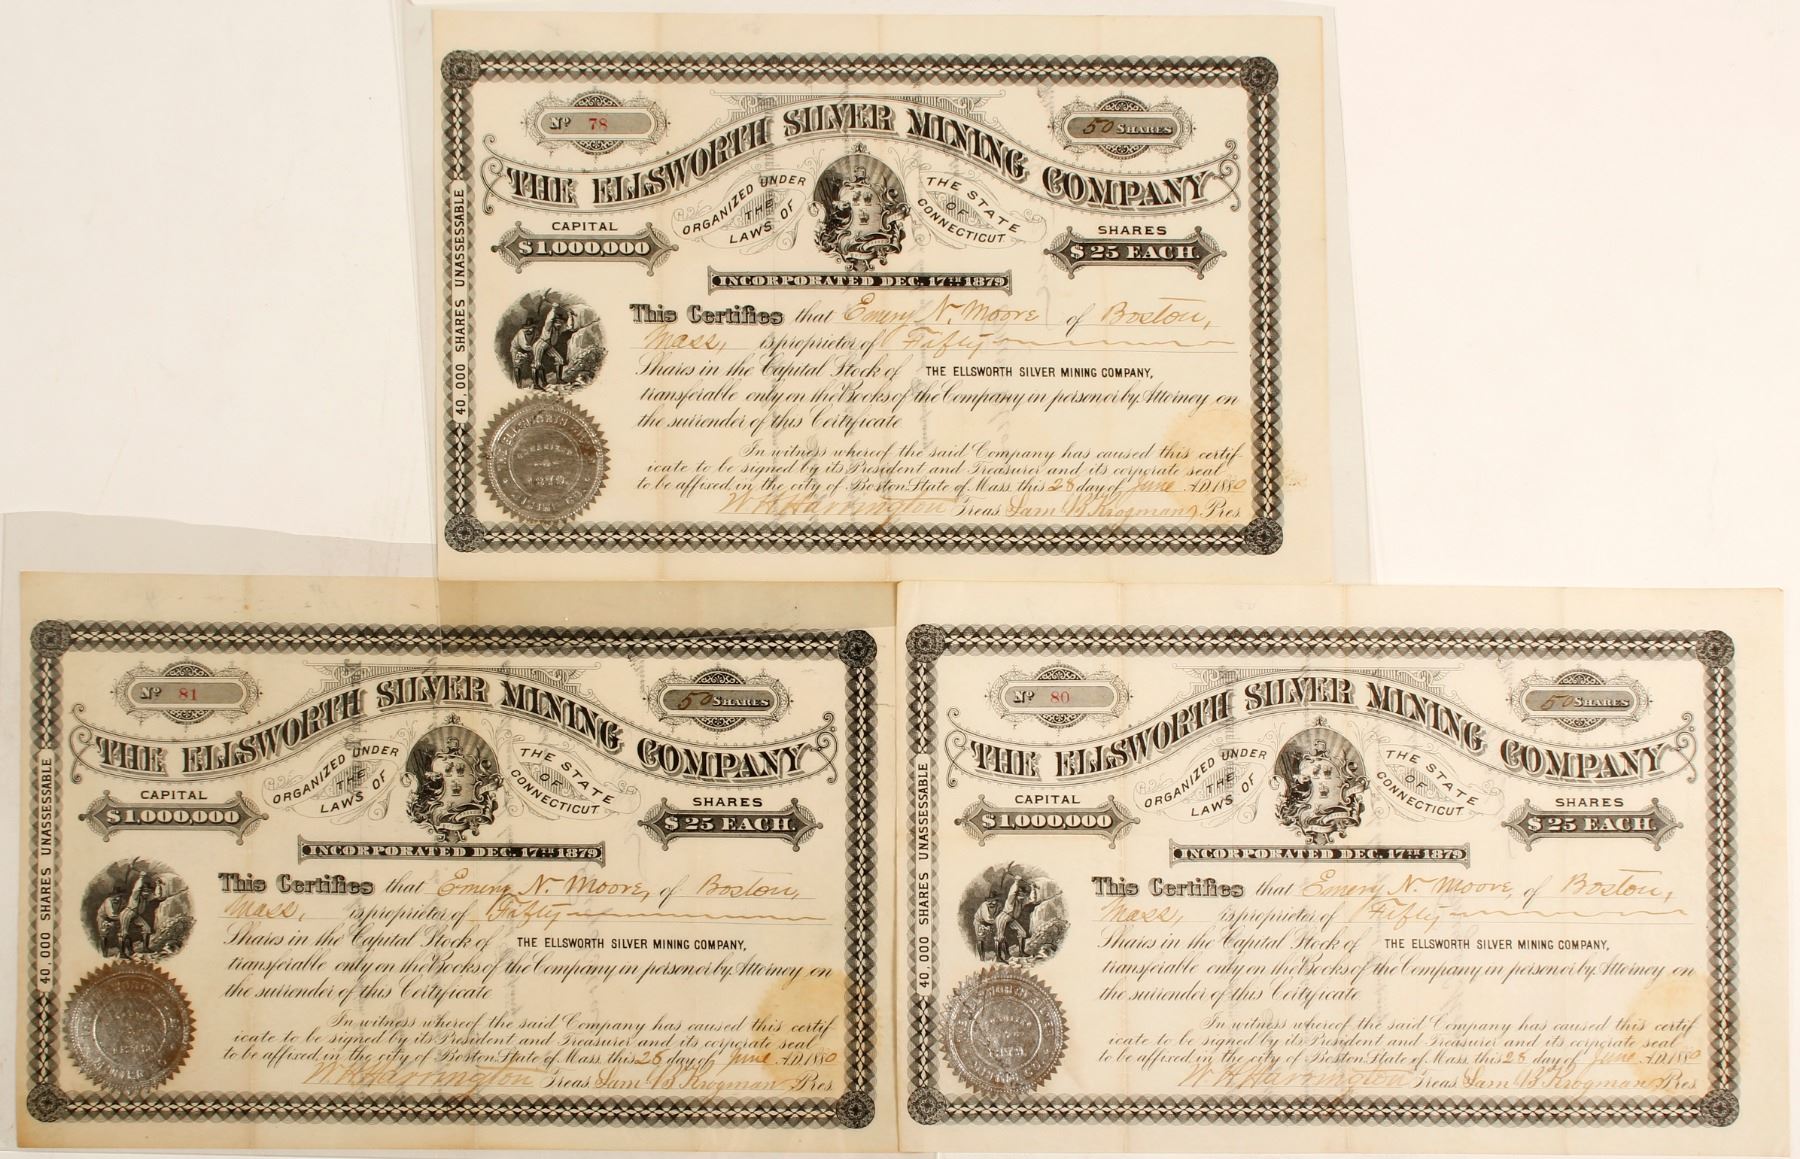 Nº 78
50 SHARES
THE ELLSWORTH SILVER MINING COMPANY
ORGANIZED UNDER THE LAWS OF
THE STATE OF CONNECTICUT
CAPITAL
$1,000,000
SHARES
$25 EACH.
INCORPORATED DEC. 17TH 1879
40,000 SHARES UNASSESSABLE
This Certifies that Emery N. Moore of Boston,
Mass, is proprietor of Fifty
Shares in the Capital Stock of THE ELLSWORTH SILVER MINING COMPANY,
transferable only on the Books of the Company in person or by Attorney on
the surrender of this Certificate
In witness whereof the said Company has caused this certif
icate to be signed by its President and Treasurer and its corporate seal
to be affixed, in the city of Boston State of Mass, this 28 day of June A.D. 1880
W. H. Harrington Treas Sam B Krogman Pres.
Nº 81
50 SHARES
THE ELLSWORTH SILVER MINING COMPANY
ORGANIZED UNDER THE LAWS OF
THE STATE OF CONNECTICUT
CAPITAL
$1,000,000
SHARES
$25 EACH.
INCORPORATED DEC. 17TH 1879
40,000 SHARES UNASSESSABLE
This Certifies that Emery N. Moore, of Boston,
Mass, is proprietor of Fifty
Shares in the Capital Stock of THE ELLSWORTH SILVER MINING COMPANY,
transferable only on the Books of the Company in person or by Attorney on
the surrender of this Certificate
In witness whereof the said Company has caused this certif
icate to be signed by its President and Treasurer and its corporate seal
to be affixed, in the city of Boston State of Mass, this 28 day of June A.D. 1880
W. H. Harrington Treas Sam B Krogman Pres.
Nº 80
50 SHARES
THE ELLSWORTH SILVER MINING COMPANY
ORGANIZED UNDER THE LAWS OF
THE STATE OF CONNECTICUT
CAPITAL
$1,000,000
SHARES
$25 EACH.
INCORPORATED DEC. 17TH 1879
40,000 SHARES UNASSESSABLE
This Certifies that Emery N. Moore, of Boston,
Mass, is proprietor of Fifty
Shares in the Capital Stock of THE ELLSWORTH SILVER MINING COMPANY,
transferable only on the Books of the Company in person or by Attorney on
the surrender of this Certificate
In witness whereof the said Company has caused this certif
icate to be signed by its President and Treasurer and its corporate seal
to be affixed, in the city of Boston State of Mass, this 28 day of June A.D. 1880
W. H. Harrington Treas Sam B Krogman Pres